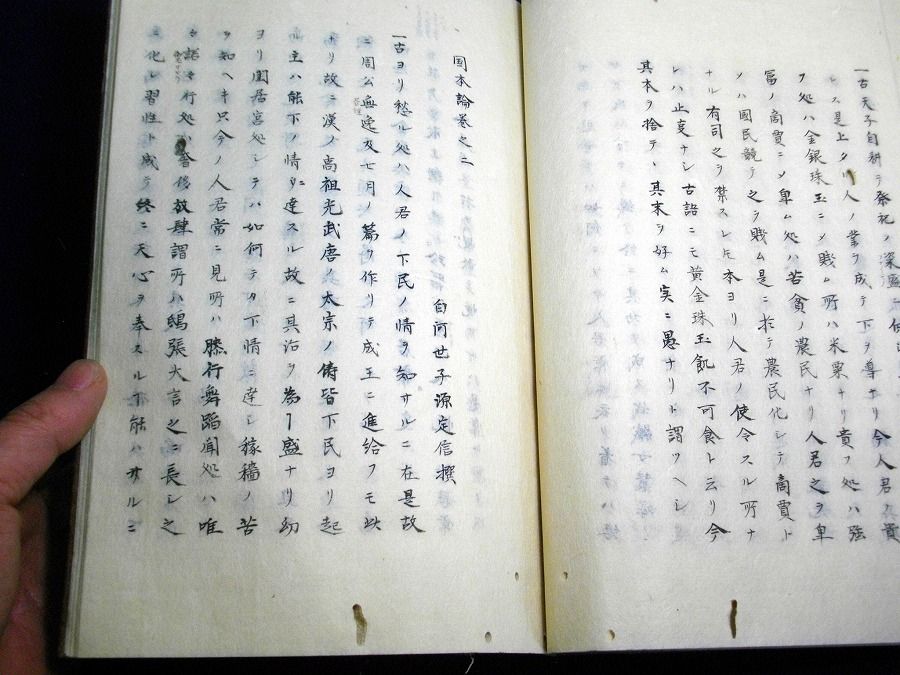 一古天子自耕テ祭祀ノ
今人君久貴
シ是上タリ人ノ業ヲ成テ下ヲ導
フ処ハ金銀珠玉ニシ賤ム所ハ米粟ナリ貴フ処ハ強
富ノ商賈ニシ卑ム処ハ苦貧ノ農民ナリ人君之ヲ卑
ハ国民競テ之ヲ賤ム是ニ於テ農民化シテ商賈ト
ナル有司之ヲ禁スレ𪜈本ヨリ人君ノ使令スル所ナ
レハ止夏ナシ古語ニモ黄金珠玉飢不可食ト云リ今
其本ヲ捨テヽ其末ヲ好ム実ニ愚ナリト謂ツヘシ
国本論巻之二
白河世子源定信撰
一古ヨリ愁ル処ハ人君ノ下民ノ情ヲ知サルニ在是故
ニ周公無逸及七月ノ篇ヲ作リテ成王ニ進給フモ此
ナリ故ニ漢ノ高祖光武唐ノ太宗ノ儔皆下民ヨリ起
主ハ能下ノ情ニ達スル故ニ其治ヲ為ヿ盛ナリ幼
ヨリ閨居宮処シテハ如何テカ下情ニ達シ稼穡ノ苦
ヲ知ヘキ只今ノ人君常ニ見所ハ膝行舞蹈聞処ハ唯
諾々行処ハ奢侈放肆謂所ハ鴟張大言之ニ長シ之
ニ化シ習性ト成テ終ニ天心ヲ奉スル不能ハサルニ